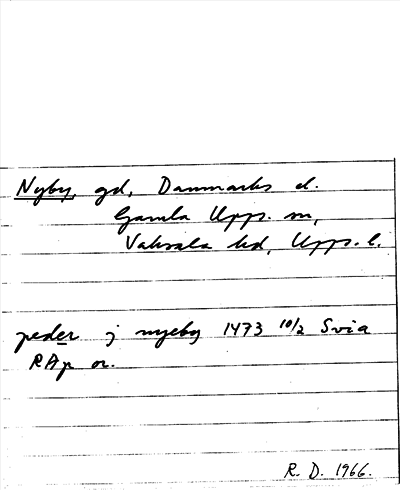 Nyby, gd, Danmarks d.
Gamla Upps. m,
Vaksala hd, Upps. l.
peder j nyeby 1473 10/2 Svia
RAp or.
R. D. 1966.